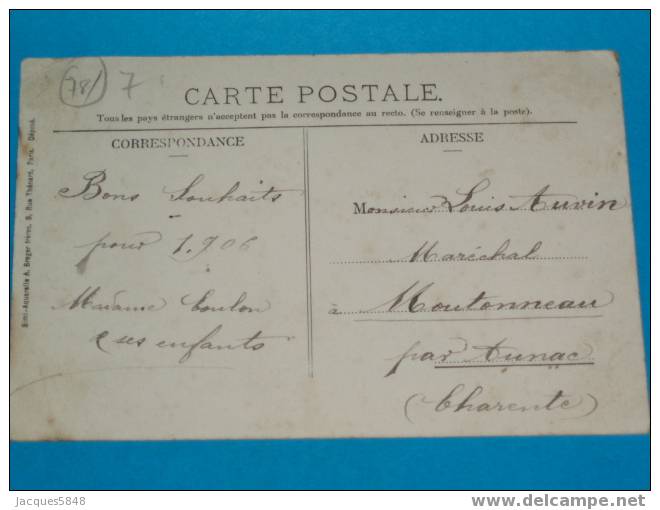 78/ 7
CARTE POSTALE.
Tous les pays étrangers n'acceptent pas la correspondance au recto. (Se renseigner à la poste).
CORRESPONDANCE
Bons Souhaits
pour 1.906
Madame Coulon
& ses enfants
ADRESSE
Monsieur Louis Auvin
Maréchal
à Moutonneau
par Aunac
(Charente)
Simi-Aquarelle A. Breger frères, 9, Rue Thénard, Paris. Déposé.
Jacques5848
delcampe.net